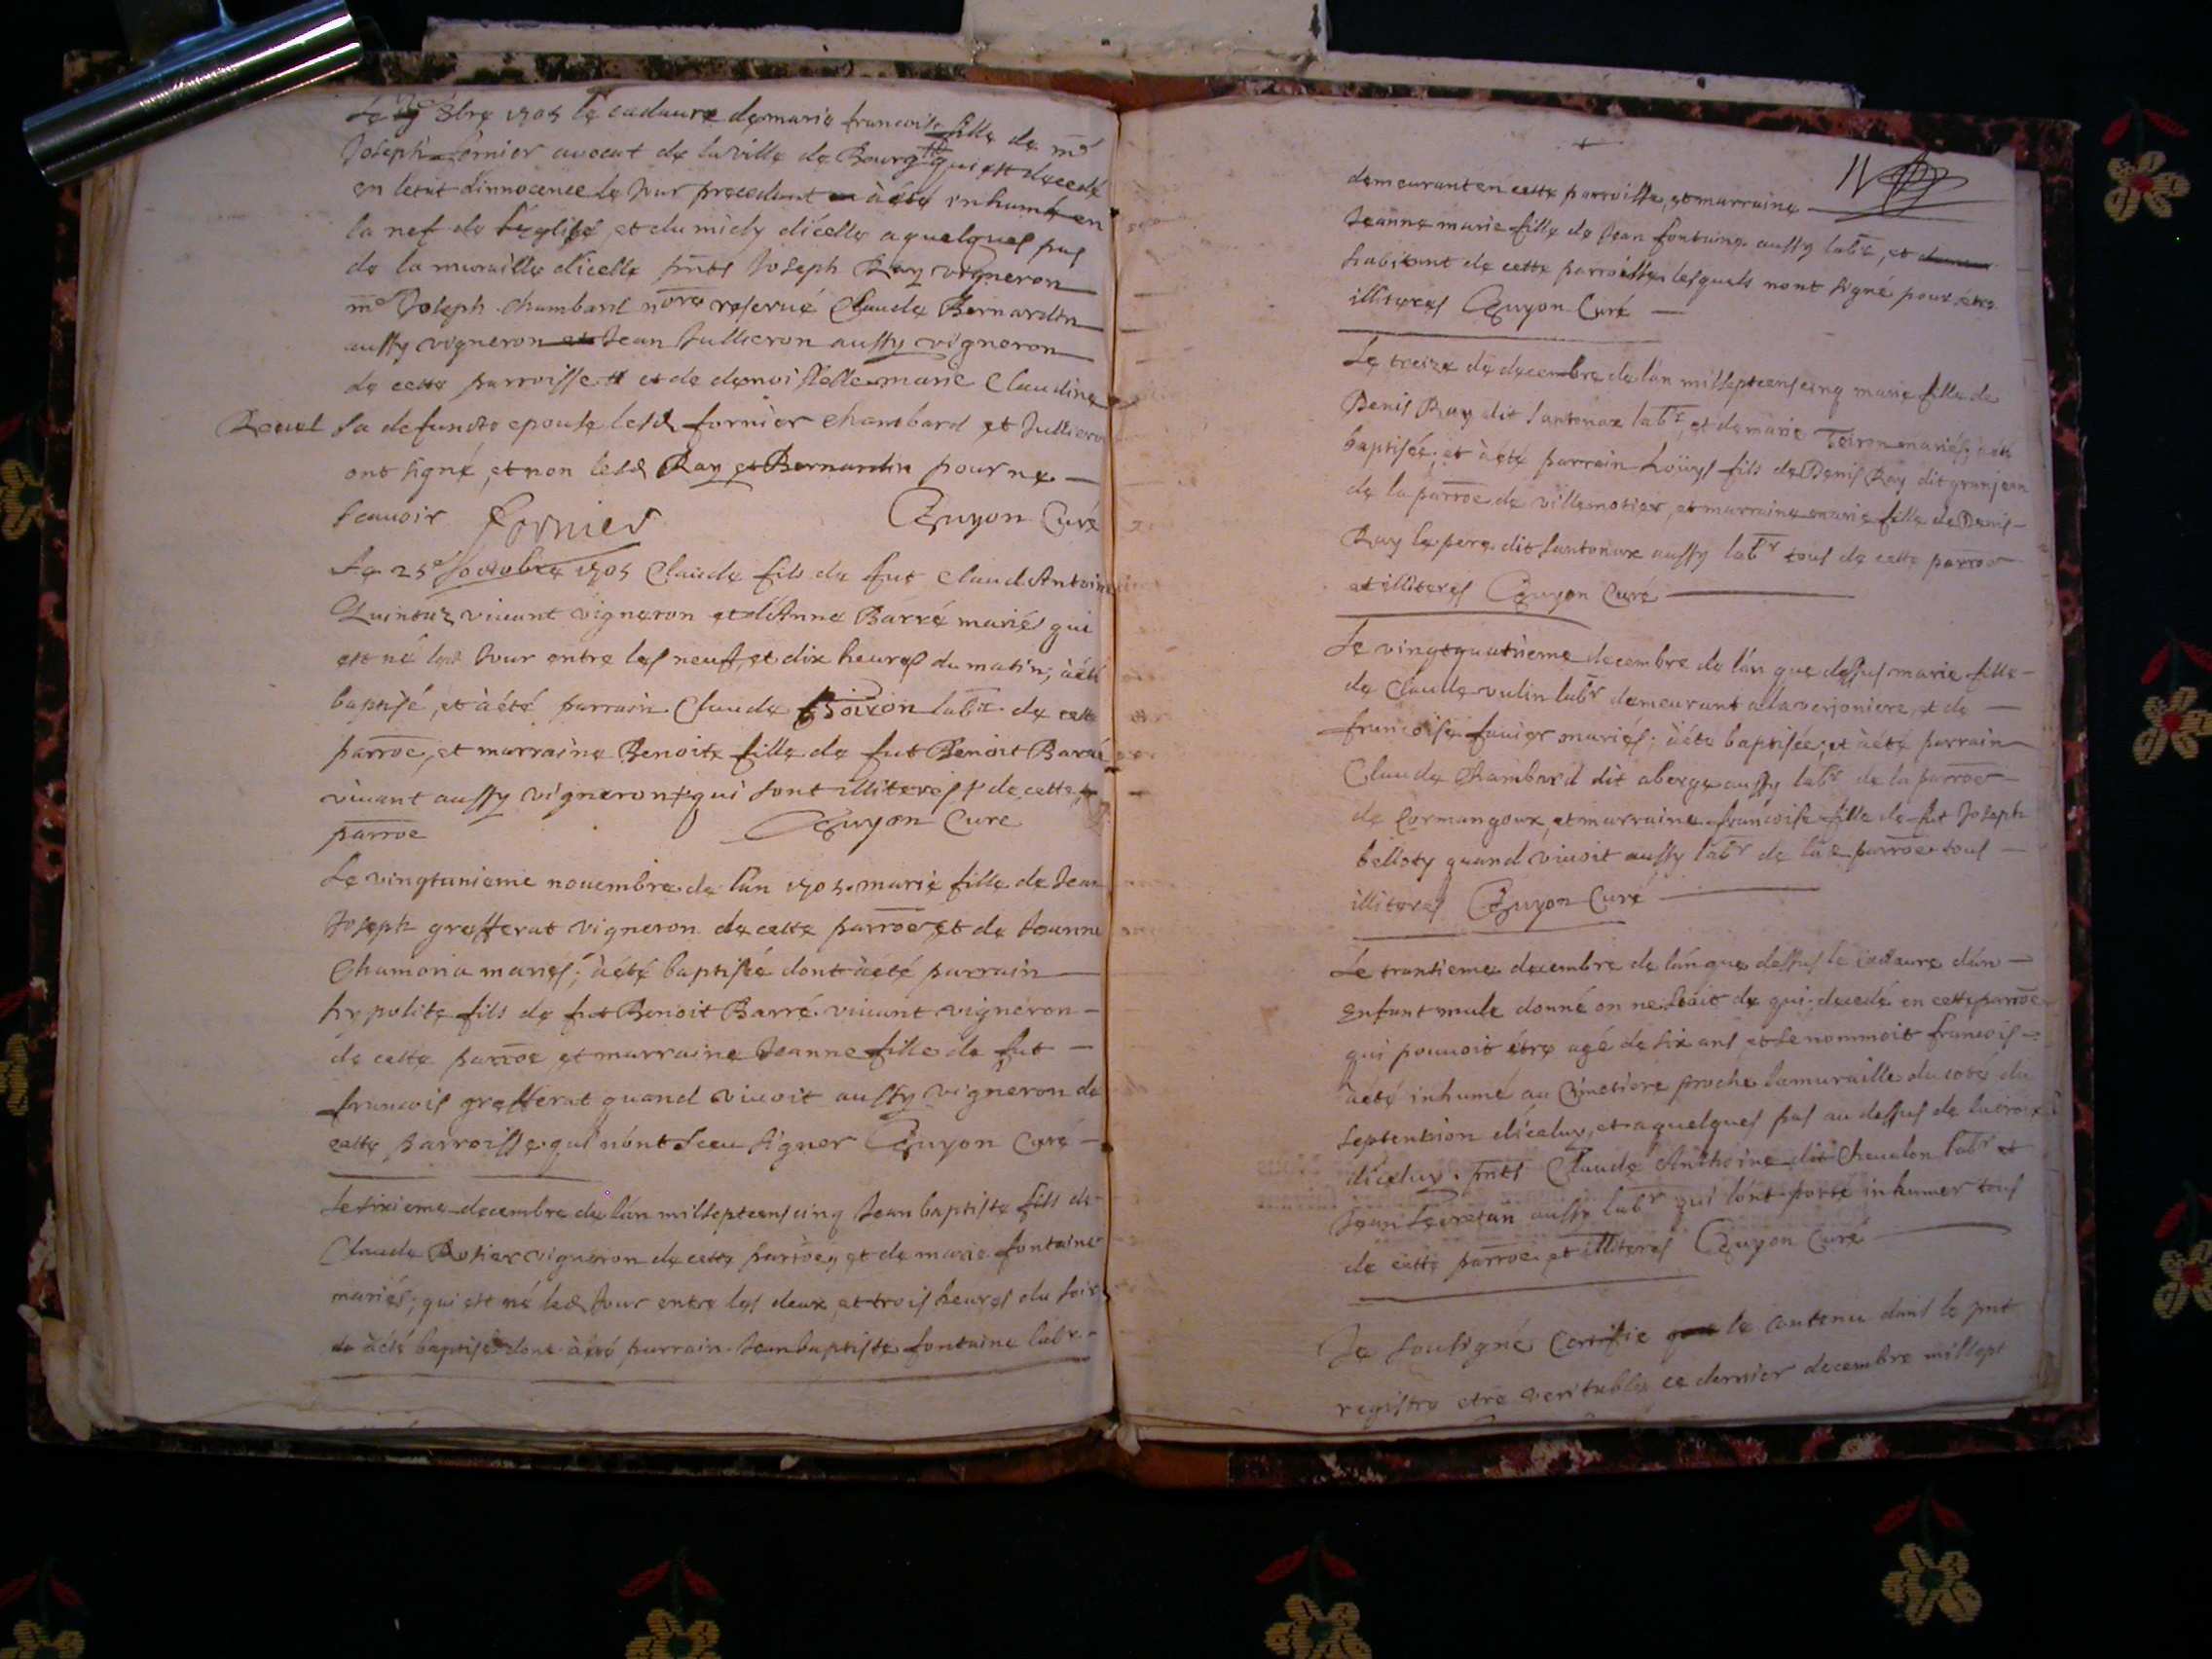 8bre 1705 le cadavre de marie francoise fille de me
Joseph fornier avocat de la ville de Bourg # qui est decedé
en letat dinnocence le Jour precedent à été inhumé en
la nef de l'eglise, et du midy dicelle a quelques pas
de la muraille dicelle pnts Joseph Ray vigneron
me Joseph Chambard nore reservé Claude Bernardin
aussy vigneron et Jean Jullieron aussy vigneron
de cette parroisse # et de demoiselle marie Claudine
Revel sa defuncte epouse lesd fornier Chambard et Jullieron
ont signé, et non lesd Ray et Bernardin pour ne
scavoir fornier Guyon Curé
Le 25e octobre 1705 Claude fils de fut Claud Antoine
vivant vigneron et d'Anne Barré mariés qui
est né led Jour entre les neuf, et dix heures du matin, à été
baptisé, et à été parrain Claude labr. de cette
parroe, et marraine Benoite fille de fut Benoit Barré
vivant aussy vigneron qui sont illiteres de cette
parroe Guyon Cure
Le vingtunieme novembre de l'an 1705 marie fille de Jean
Joseph grefferat vigneron de cette parroe, et de Jeanne
Chamoria mariés; à été baptisée dont à été parrain
hypolite fils de fut Benoit Barré vivant vigneron
de cette parroe et marraine Jeanne fille de fut
francois grefferat quand vivoit aussy vigneron de
cette parroisse qui n'ont sceu signer Guyon Curé
Le sixieme decembre de l'an millseptcenscinq Jean baptiste fils de
Claude Rosier vigneron de cette parroe, et de marie fontaine
mariés; qui est né led Jour entre les deux, et trois heures du soir
à été baptisé dont à été parrain Jean baptiste fontaine labr.
11
demeurant en cette parroisse, et marraine
Jeanne marie fille de Jean fontaine aussy labr, et
habitant de cette parroisse lesquels nont signé pour être
illiteres Guyon Curé
Le treize de decembre de l'an millseptcenscinq marie fille de
Denis Ray dit Santonax labr, et de marie mariés, à été
baptisée, et à été parrain Loüys fils de Denis Ray dit granjean
de la parroe de villemotier, et marraine marie fille de Denis
Ray le pere dit Santonax aussy labr tous de cette parroe
et illiteres Guyon Curé
Le vingtquatrieme decembre de l'an que dessus marie fille
de Claude vulin labr demeurant a la verjoniere, et de
francoise favier mariés; à été baptisée, et à été parrain
Claude Chambard dit aberge aussy labr de la parroe
de Cormangoux, et marraine francoise fille de fut Joseph
belloty quand vivoit aussy labr de lad parroe tous
illiteres Guyon Curé
Le trantieme decembre de l'an que dessus le cadavre d'un
enfant male donné on ne scait de qui, decedé en cette parroe
qui pouvoit être agé de six ans et se nommoit francois
à été inhumé au Cimetiere proche la muraille du coté du
septention diceluy, et a quelques pas au dessus de la croix
diceluy. pnts Claude Anthoine dit Chevalon labr et
Jean aussy labr qui l'ont porté inhumer tous
de cette parroe et illiteres Guyon Curé
Je sousigné Certifie le contenu dans le pnt
registre etre veritable, ce dernier decembre millsept